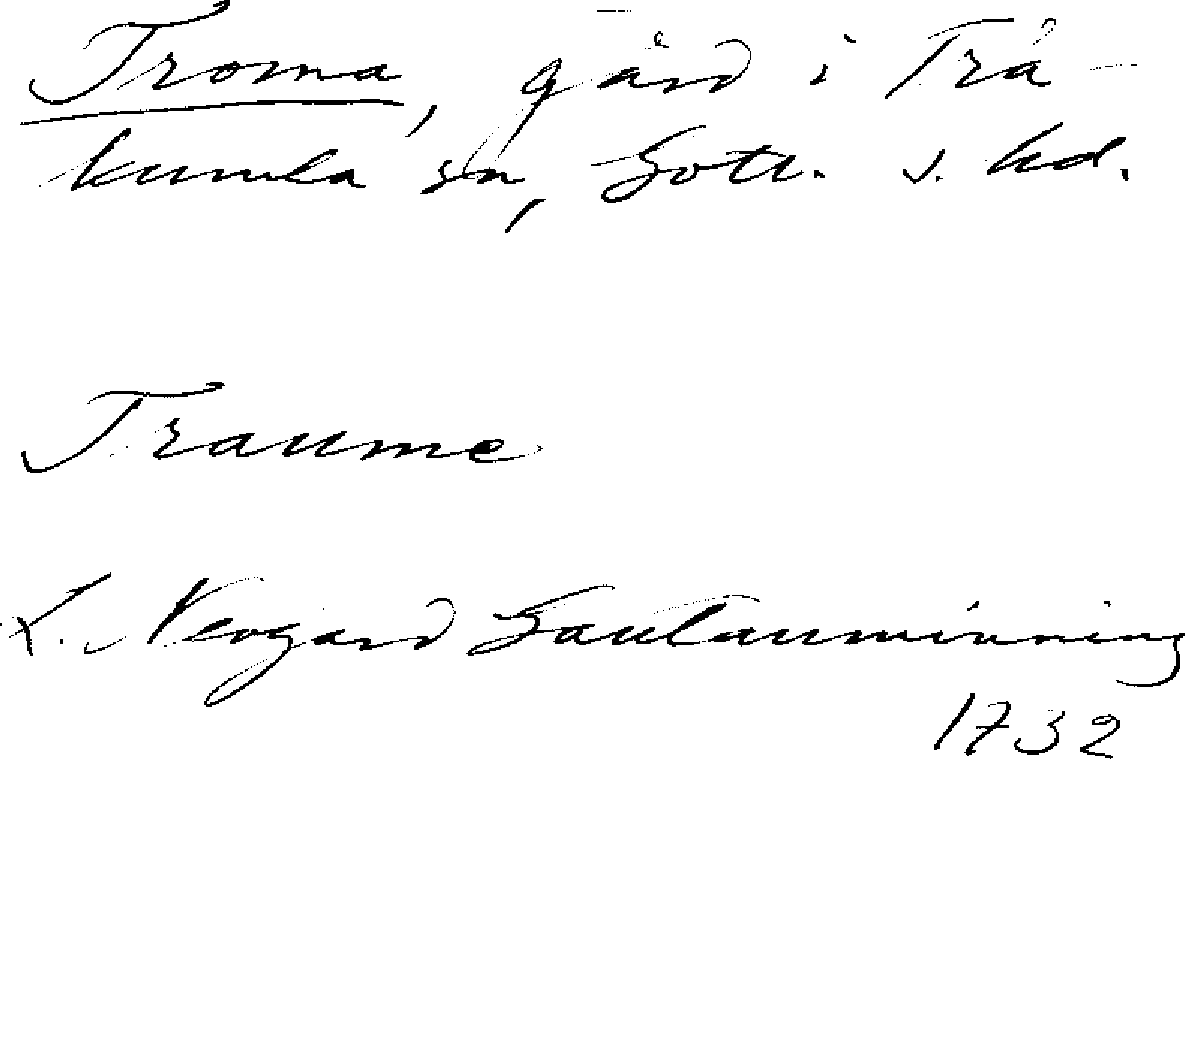 Troma, gård i Trå-
kumla sn, Gotl. s. hd.
Traume
L. Neogard Gautauminning
1732